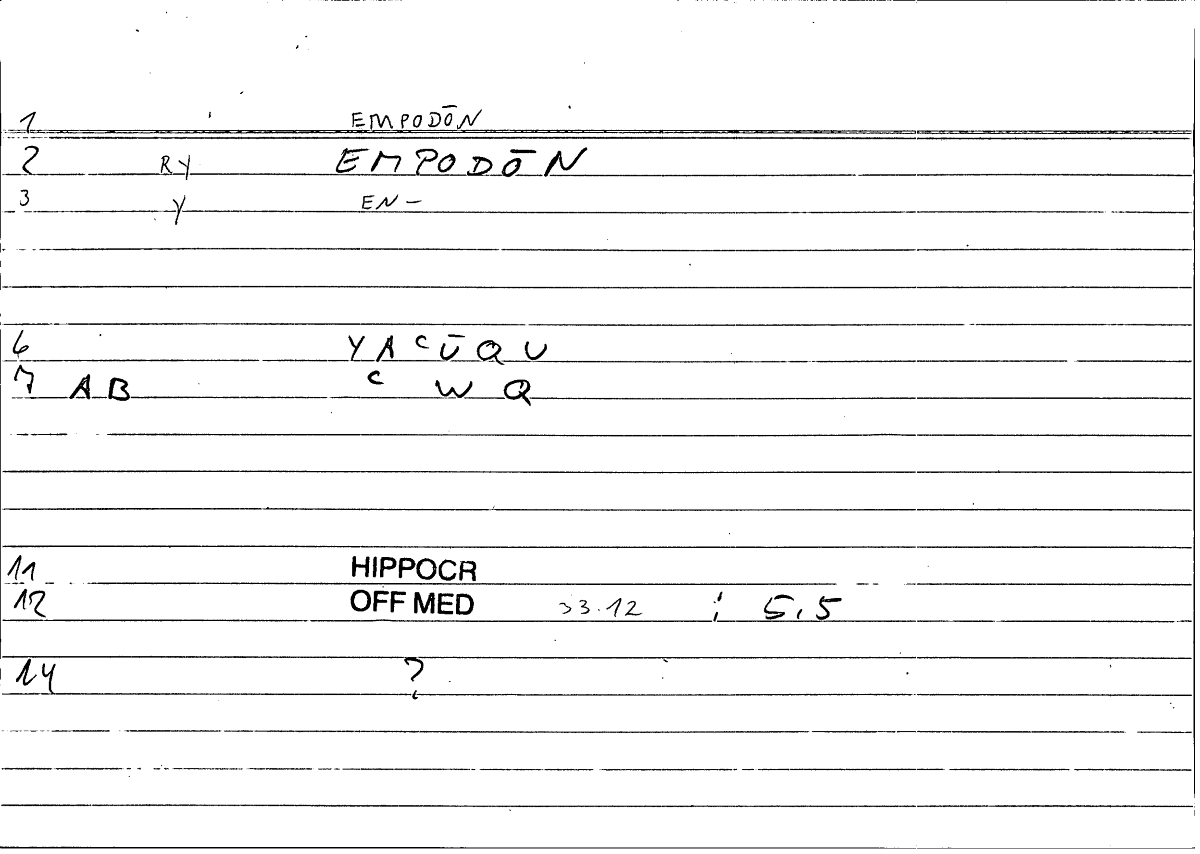 1 EMPODŌN
2 RY EMPODŌN
3 Y EN-
6 YAᶜŪQU
7 AB ᶜ W Q
11 HIPPOCR
12 OFF MED 33.12 ; 5,5
14 ?